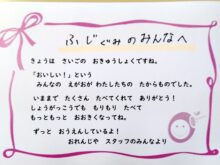 ふじぐみのみんなへ
きょうは さいごの おきゅうしょくですね。
「おいしい！」という
みんなの えがおが わたしたちの たからものでした。
いままで たくさん たべてくれて ありがとう！
しょうがっこうでも もりもり たべて
もっともっと おおきくなってね。
ずっと おうえんしているよ！
おれんじや スタッフのみんなより